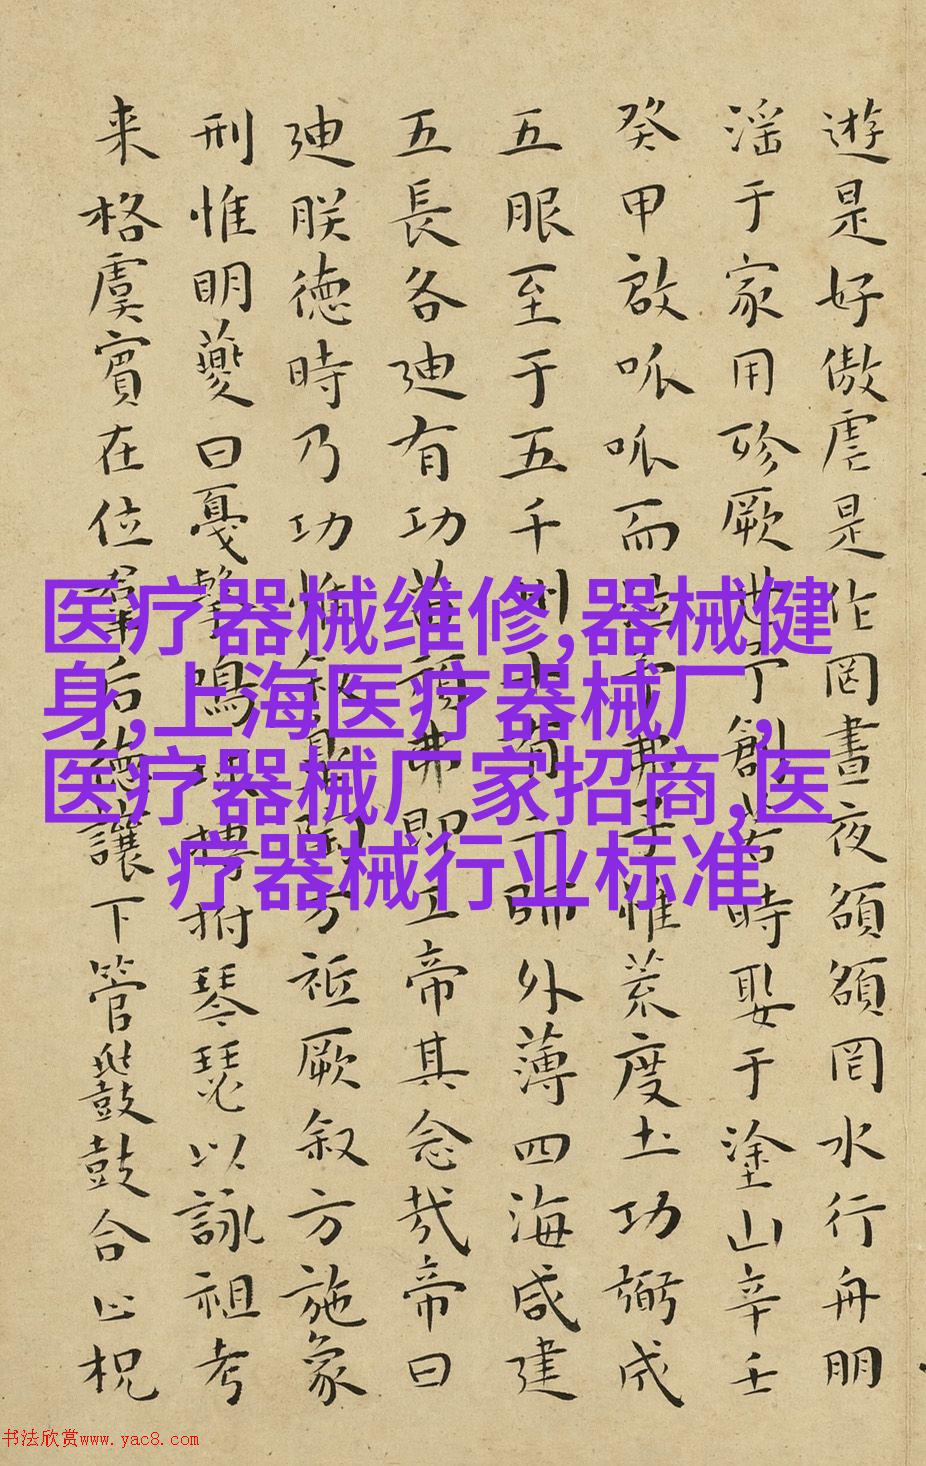 遊是好傲虐是作罔晝夜頟頟罔水行舟朋
淫于家用殄厥世予創若時娶于塗山辛壬
癸甲啟呱呱而泣予弗子惟荒度土功弼成
五服至于五千州十有二師外薄四海咸建
五長各迪有功苗頑弗即工帝其念哉帝曰
迪朕德時乃功惟叙皋陶方祗厥叙方施象
刑惟明夔曰戛擊鳴球搏拊琴瑟以詠祖考
来格虞賓在位羣后德讓下管鼗鼓合止柷
医疗器械维修,器械健
身,上海医疗器械厂,
医疗器械厂家招商,医
疗器械行业标准
书法欣赏www.yac8.com